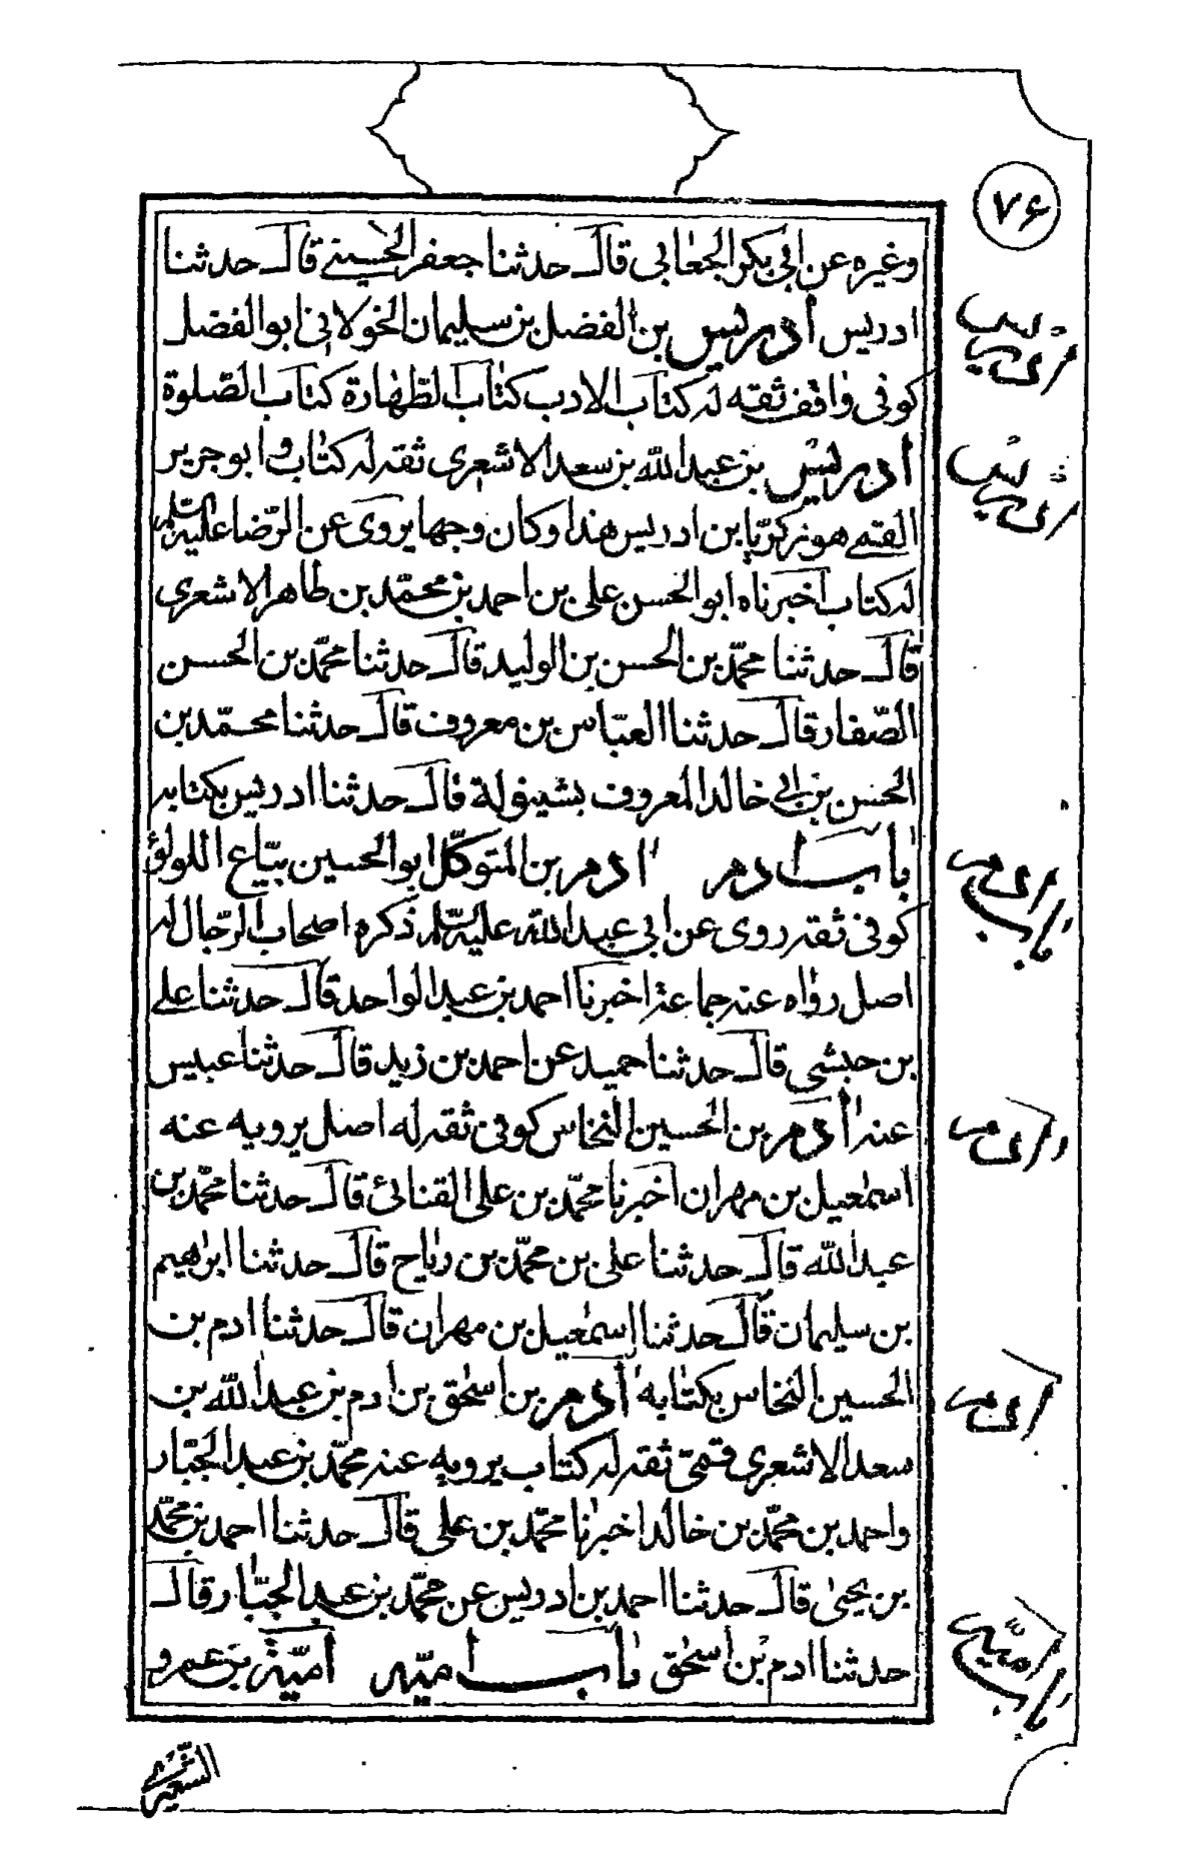 ٧۶
وغيره عن ابى بكر الجعابي قال حدثنا جعفر الحسينے قال حدثنا
ادريس أدريس بن الفضل بن سليمان الخولانى ابو الفضل
كوفى واقف ثقه له كتاب الادب كتاب الطهارة كتاب الصّلوة
أدريس بن عبد اللّه بن سعد الاشعرى ثقه له كتاب و ابو جرير
القمے هو زكريّا بن ادريس هذا وكان وجها يروى عن الرّضا عليه السّلم
له كتاب اخبرناه ابو الحسن على بن احمد بن محمّد بن طاهر الاشعرى
قال حدثنا محمّد بن الحسن بن الوليد قال حدثنا محمّد بن الحسن
الصّفار قال حدثنا العبّاس بن معروف قال حدثنا محمّد بن
الحسن بن ابى خالد المعروف بشينولة قال حدثنا ادريس بكتابه
باب ادم ادم بن المتوكّل ابو الحسين بيّاع اللولؤ
كوفى ثقه روى عن ابى عبد اللّه عليه السّلم ذكره اصحاب الرّجال له
اصل رواه عنه جماعة اخبرنا احمد بن عبد الواحد قال حدثنا علے
بن حبشى قال حدثنا حميد عن احمد بن زيد قال حدثنا عبيس
عنه أدم بن الحسين النخاس كوفى ثقه له اصل يرويه عنه
اسمعيل بن مهران اخبرنا محمّد بن على القنائى قال حدثنا محمّد بن
عبد اللّه قال حدثنا على بن محمّد بن رباح قال حدثنا ابرهيم
بن سليمان قال حدثنا اسمعيل بن مهران قال حدثنا ادم بن
الحسين النخاس بكتابه أدم بن اسحق بن ادم بن عبد اللّه بن
سعد الاشعرى قمّى ثقه له كتاب يرويه عنه محمّد بن عبد الجبّار
واحمد بن محمّد بن خالد اخبرنا محمّد بن على قال حدثنا احمد بن محمّد
بن يحيى قال حدثنا احمد بن ادريس عن محمّد بن عبد الجبّار قال
حدثنا ادم بن اسحق باب اميّه أميّة بن عمرو
الشّعيرى
ادريس
ادريس
باب ادم
ادم
ادم
باب اميّه